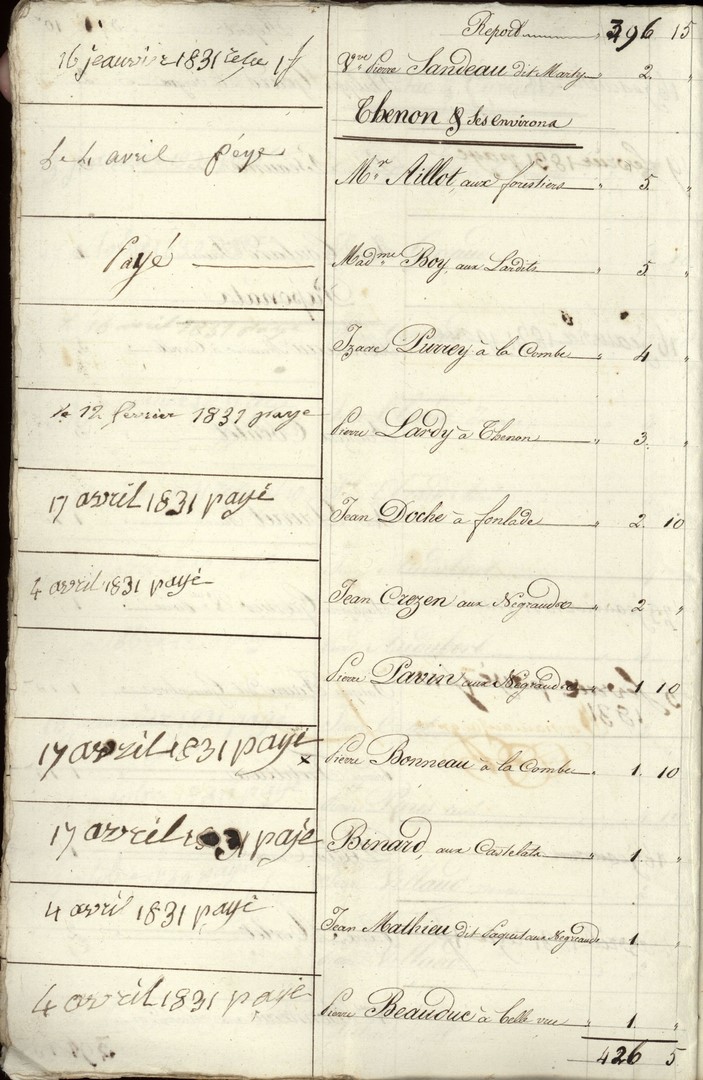 Report 396 15
16 jeanvie 1831 1f
Vve Pierre Sandeau dit Marty " 2. "
Thenon & Ses environs
Le 4 avril péye
Mr Aillot, aux forestiers " 5. "
Payé
Madme Boy, aux Lardits " 5. "
Izaac Purrey à la Combe " 4 "
le 12 fevrier 1831 paye
Pierre Lardy à Thenon " 3. "
17 avril 1831 payé
Jean Doche à fonlade " 2. 10
4 avril 1831 payé
Jean Crezen aux Négraudes " 2 "
Pierre Pavin aux Négraudes " 1. 10
17 avril 1831 payé
Pierre Bonneau à la Combe " 1. 10
17 avril 1831 paje
Binard, aux Castelats " 1. "
4 avril 1831 payé
Jean Mathieu dit aux Négraudes 1. "
4 avril 1831 payé
Pierre Beauduc à belle vue " 1. "
426 5